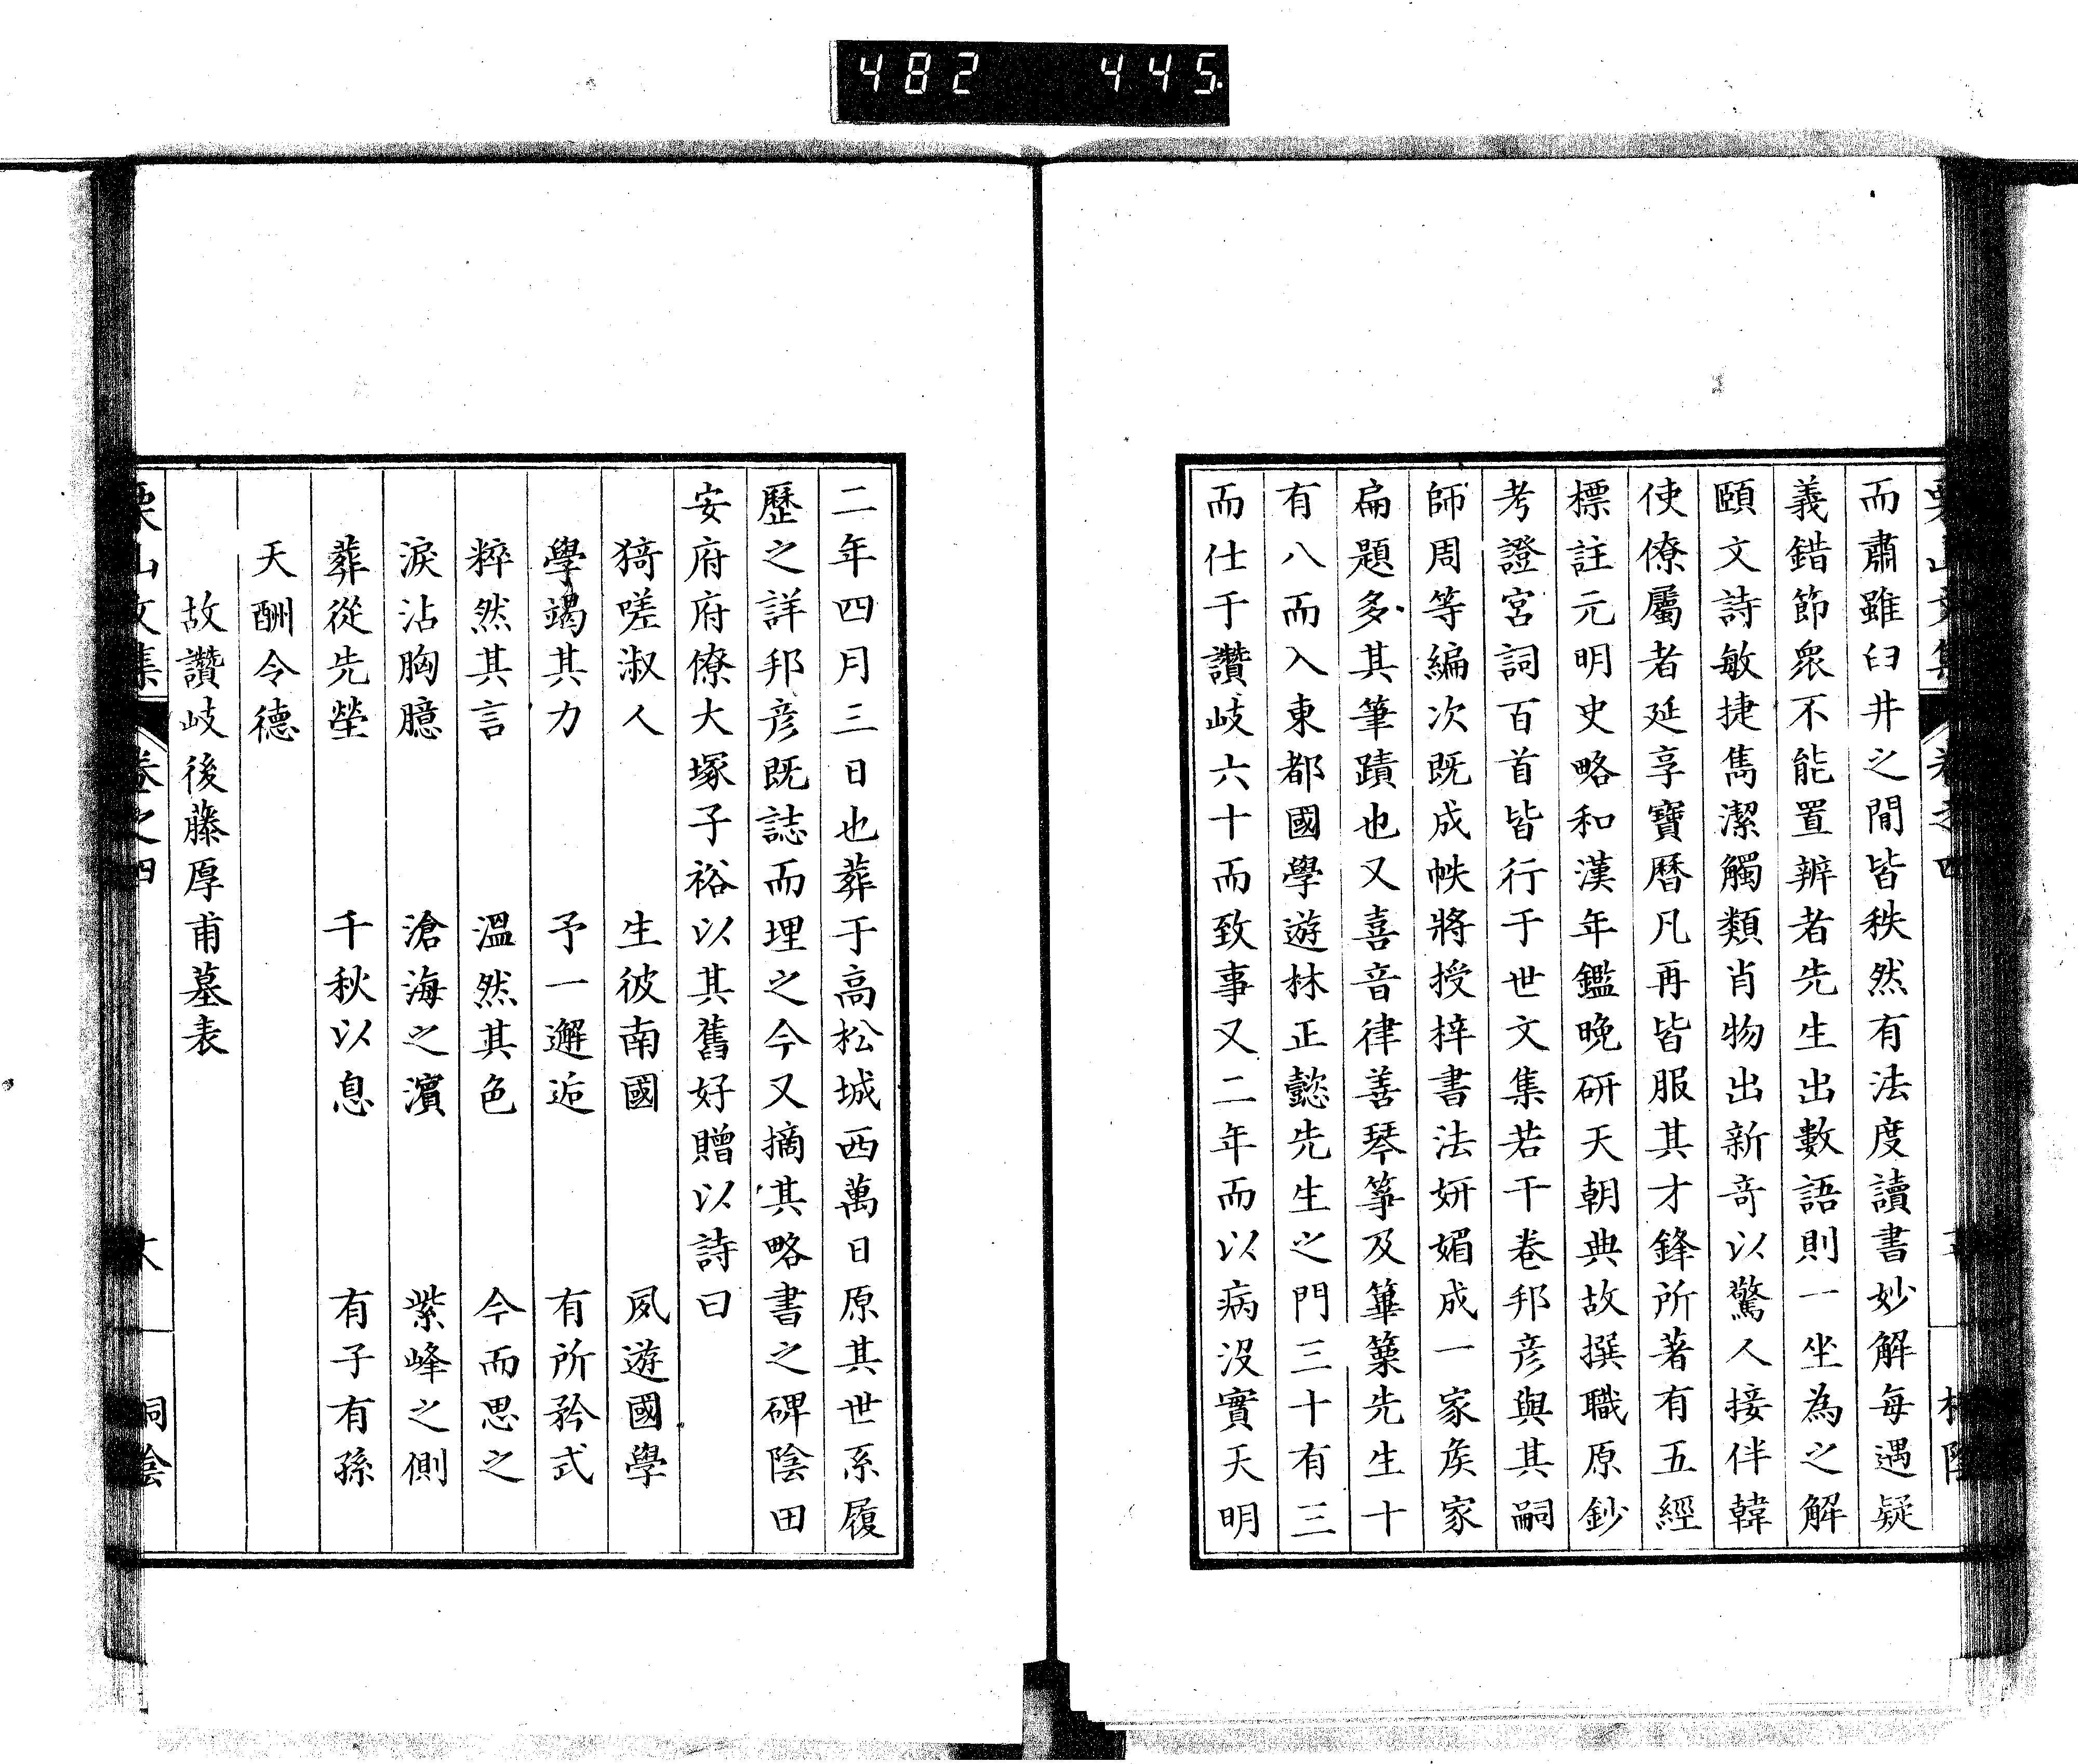 482 445
而肅雖臼井之間皆秩然有法度讀書妙解每遇疑
義錯節衆不能置辨者先生出數語則一坐為之解
頤文詩敏捷雋潔觸類肖物出新奇以驚人接伴韓
使僚屬者延享寶曆凡再皆服其才鋒所著有五經
標註元明史略和漢年鑑晩研天朝典故撰職原鈔
考證宮詞百首皆行于世文集若干卷邦彦與其嗣
師周等編次既成帙將授梓書法妍媚成一家矦家
扁題多其筆蹟也又喜音律善琴箏及篳篥先生十
有八而入東都國學遊林正懿先生之門三十有三
而仕于讚岐六十而致事又二年而以病沒實天明
二年四月三日也葬于高松城西萬日原其世系履
歷之詳邦彦既誌而埋之今又摘其略書之碑陰田
安府府僚大塚子裕以其舊好贈以詩曰
猗嗟淑人 生彼南國 夙遊國學
學竭其力 予一邂逅 有所矜式
粹然其言 溫然其色 今而思之
淚沾胸臆 滄海之濱 紫峰之側
葬從先塋 千秋以息 有子有孫
天酬令德
故讚岐後藤厚甫墓表
栗山文集 卷之四